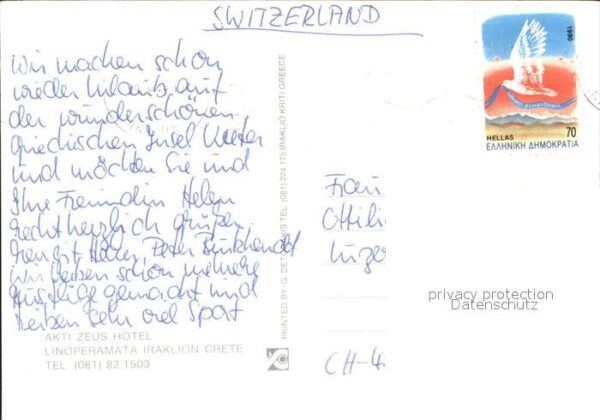 SWITZERLAND
Wir machen schon
wieder Urlaub auf
der wunderschönen
griechischen Insel Kreta
und möchten Sie und
Ihre Freundin Helen
recht herzlich grüßen
Peter Burkhardt
Wir haben schon mehrere
Ausflüge gemacht und
treiben sehr viel Sport
AKTI ZEUS HOTEL
LINOPERAMATA IRAKLION CRETE
TEL (081) 82.1503
PRINTED BY G. TEL. (081) 224.175 IRAKLIO KRITI GREECE
1990
HELLAS 70
ΕΛΛΗΝΙΚΗ ΔΗΜΟΚΡΑΤΙΑ
Frau
Ottili
Luze
CH-4
privacy protection
Datenschutz